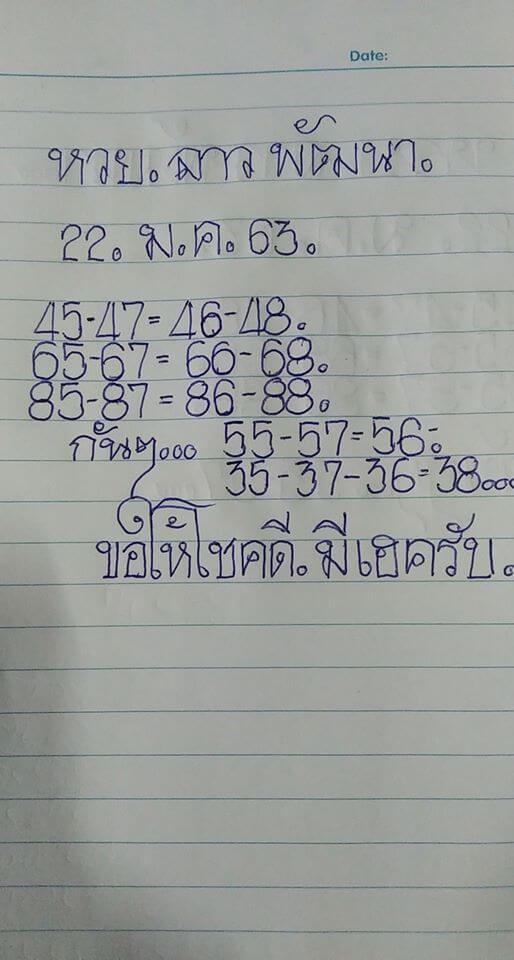 Date:
หวย. ลาว พัฒนา.
22. ม.ค. 63.
45-47 = 46-48.
65-67 = 66-68.
85-87 = 86-88.
กันๆ... 55-57=56:
35-37-36=38...
ขอให้โชคดี. มีเฮครับ.